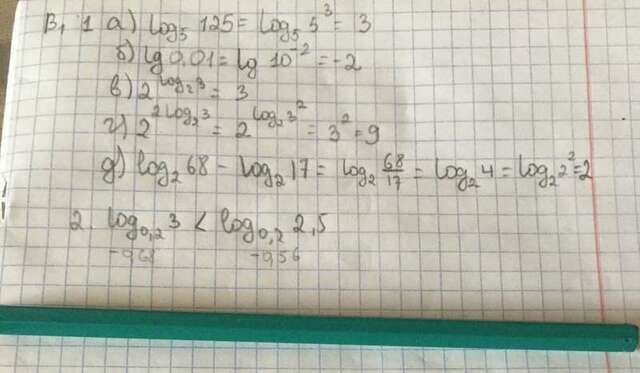 В1 1 а) log₅ 125 = log₅ 5³ = 3
б) lg 0,01 = lg 10⁻² = -2
в) 2^(log₂ 3) = 3
г) 2^(2log₂ 3) = 2^(log₂ 3²) = 3² = 9
д) log₂ 68 - log₂ 17 = log₂ 68/17 = log₂ 4 = log₂ 2² = 2
2. log₀,₂ 3 < log₀,₂ 2,5
-0,56